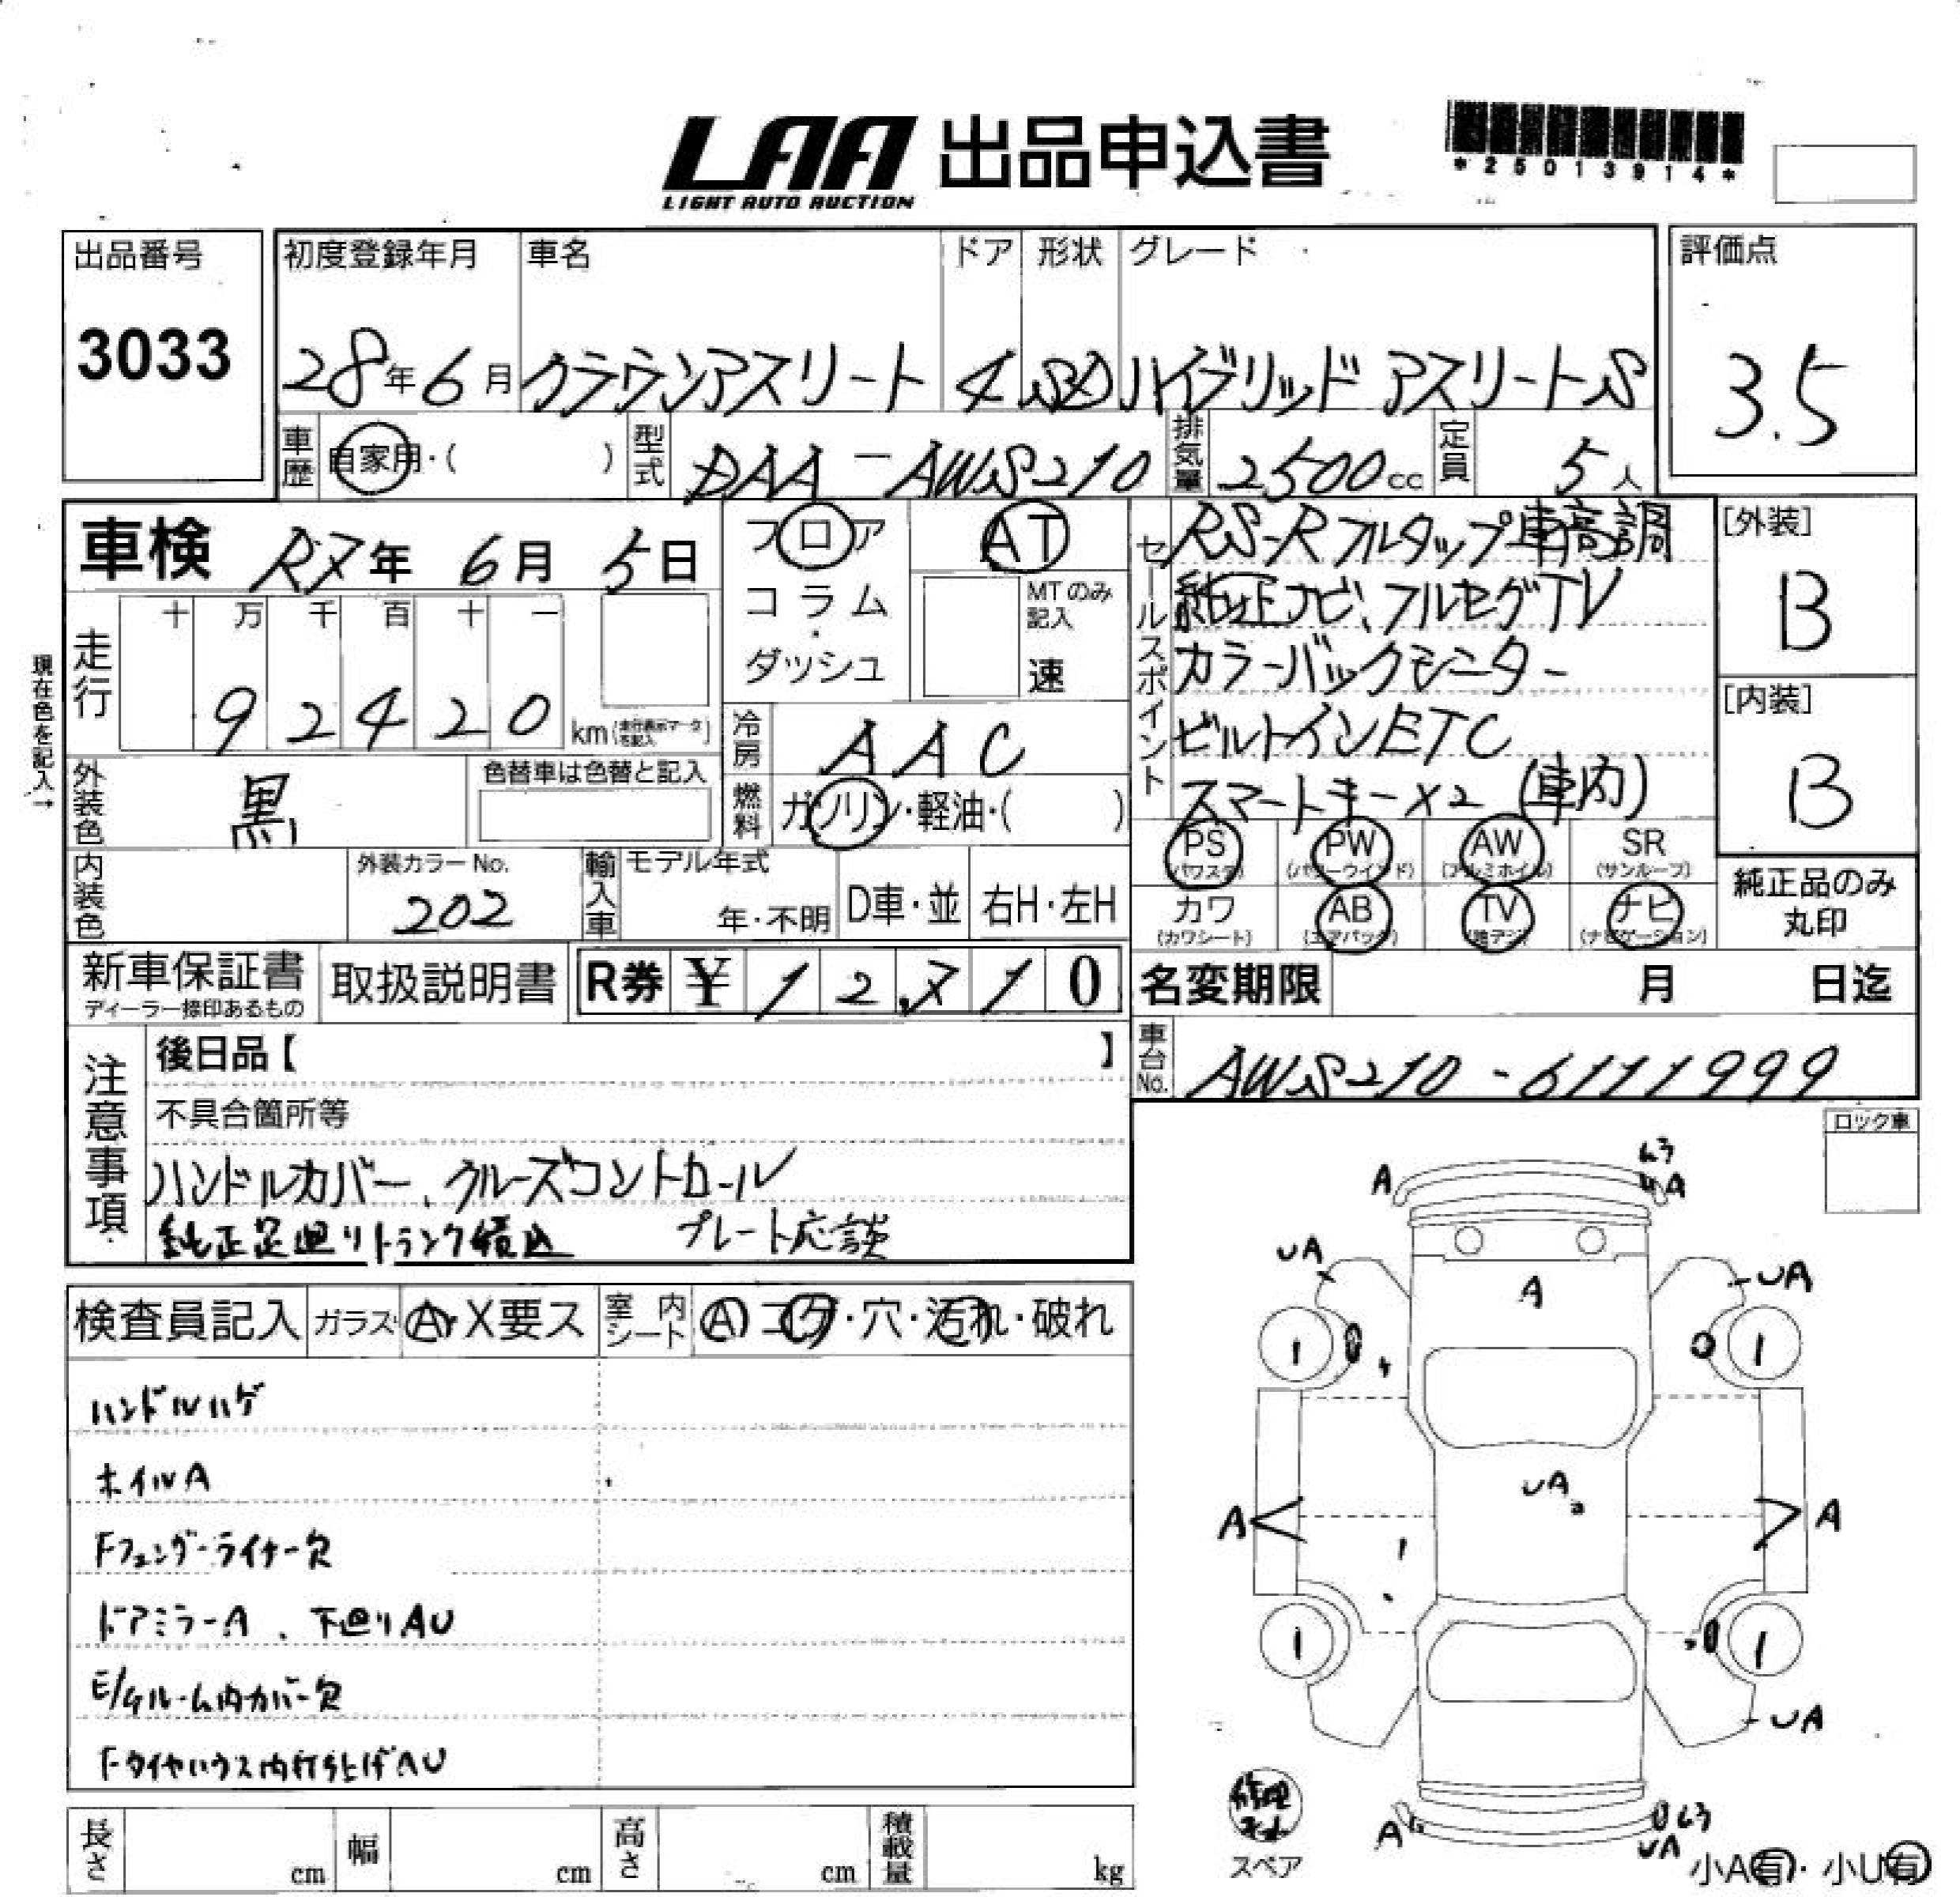 LAA 出品申込書
LIGHT AUTO AUCTION
*25013914*
出品番号
3033
初度登録年月 車名 ドア 形状 グレード
28年6月 クラウンアスリート 4 SD ハイブリッド アスリートS
評価点
3.5
車歴 自家用・( ) 型式 DAA-AWS210 排気量 2500cc 定員 5人
車検 R7年 6月 5日
フロア
コラム
・
ダッシュ
AT
MTのみ
記入
速
走行 十 万 千 百 十 一
92420 km (走行表示マークを記入)
現在色を記入→
外装色 黒 色替車は色替と記入
冷房 AAC
燃料 ガソリン・軽油・( )
セールスポイント
RS-Rフルタップ車高調
純正ナビ、フルセグTV
カラーバックモニター
ビルトインETC
スマートキー×2 (車内)
[外装]
B
[内装]
B
内装色 外装カラーNo. 202
輸入車 モデル年式 年・不明 D車・並 右H・左H
PS (パワステ) PW (パワーウインド) AW (アルミホイル) SR (サンルーフ)
カワ (カワシート) AB (エアバック) TV (地デジ) ナビ (ナビゲーション)
純正品のみ
丸印
新車保証書
ディーラー捺印あるもの
取扱説明書 R券 ¥ 12,710
名変期限 月 日迄
車台No. AWS210-6111999
注意事項
後日品【 】
不具合箇所等
ハンドルカバー、クルーズコントロール
純正足廻りトランク積込 プレート応談
ロック車
検査員記入 ガラス A・X要ス 室内シート A コゲ・穴・汚れ・破れ
ハンドルハゲ
ホイルA
Fフェンダーライナー欠
ドアミラーA、下廻りAU
E/gルーム内カバー欠
Fタイヤハウス内打ち上げAU
A
UA
UA
A
UA
1
1
UA
A
A
1
1
UA
A
UA
修理キット
スペア
小A有・小U有
長さ cm 幅 cm 高さ cm 積載量 kg